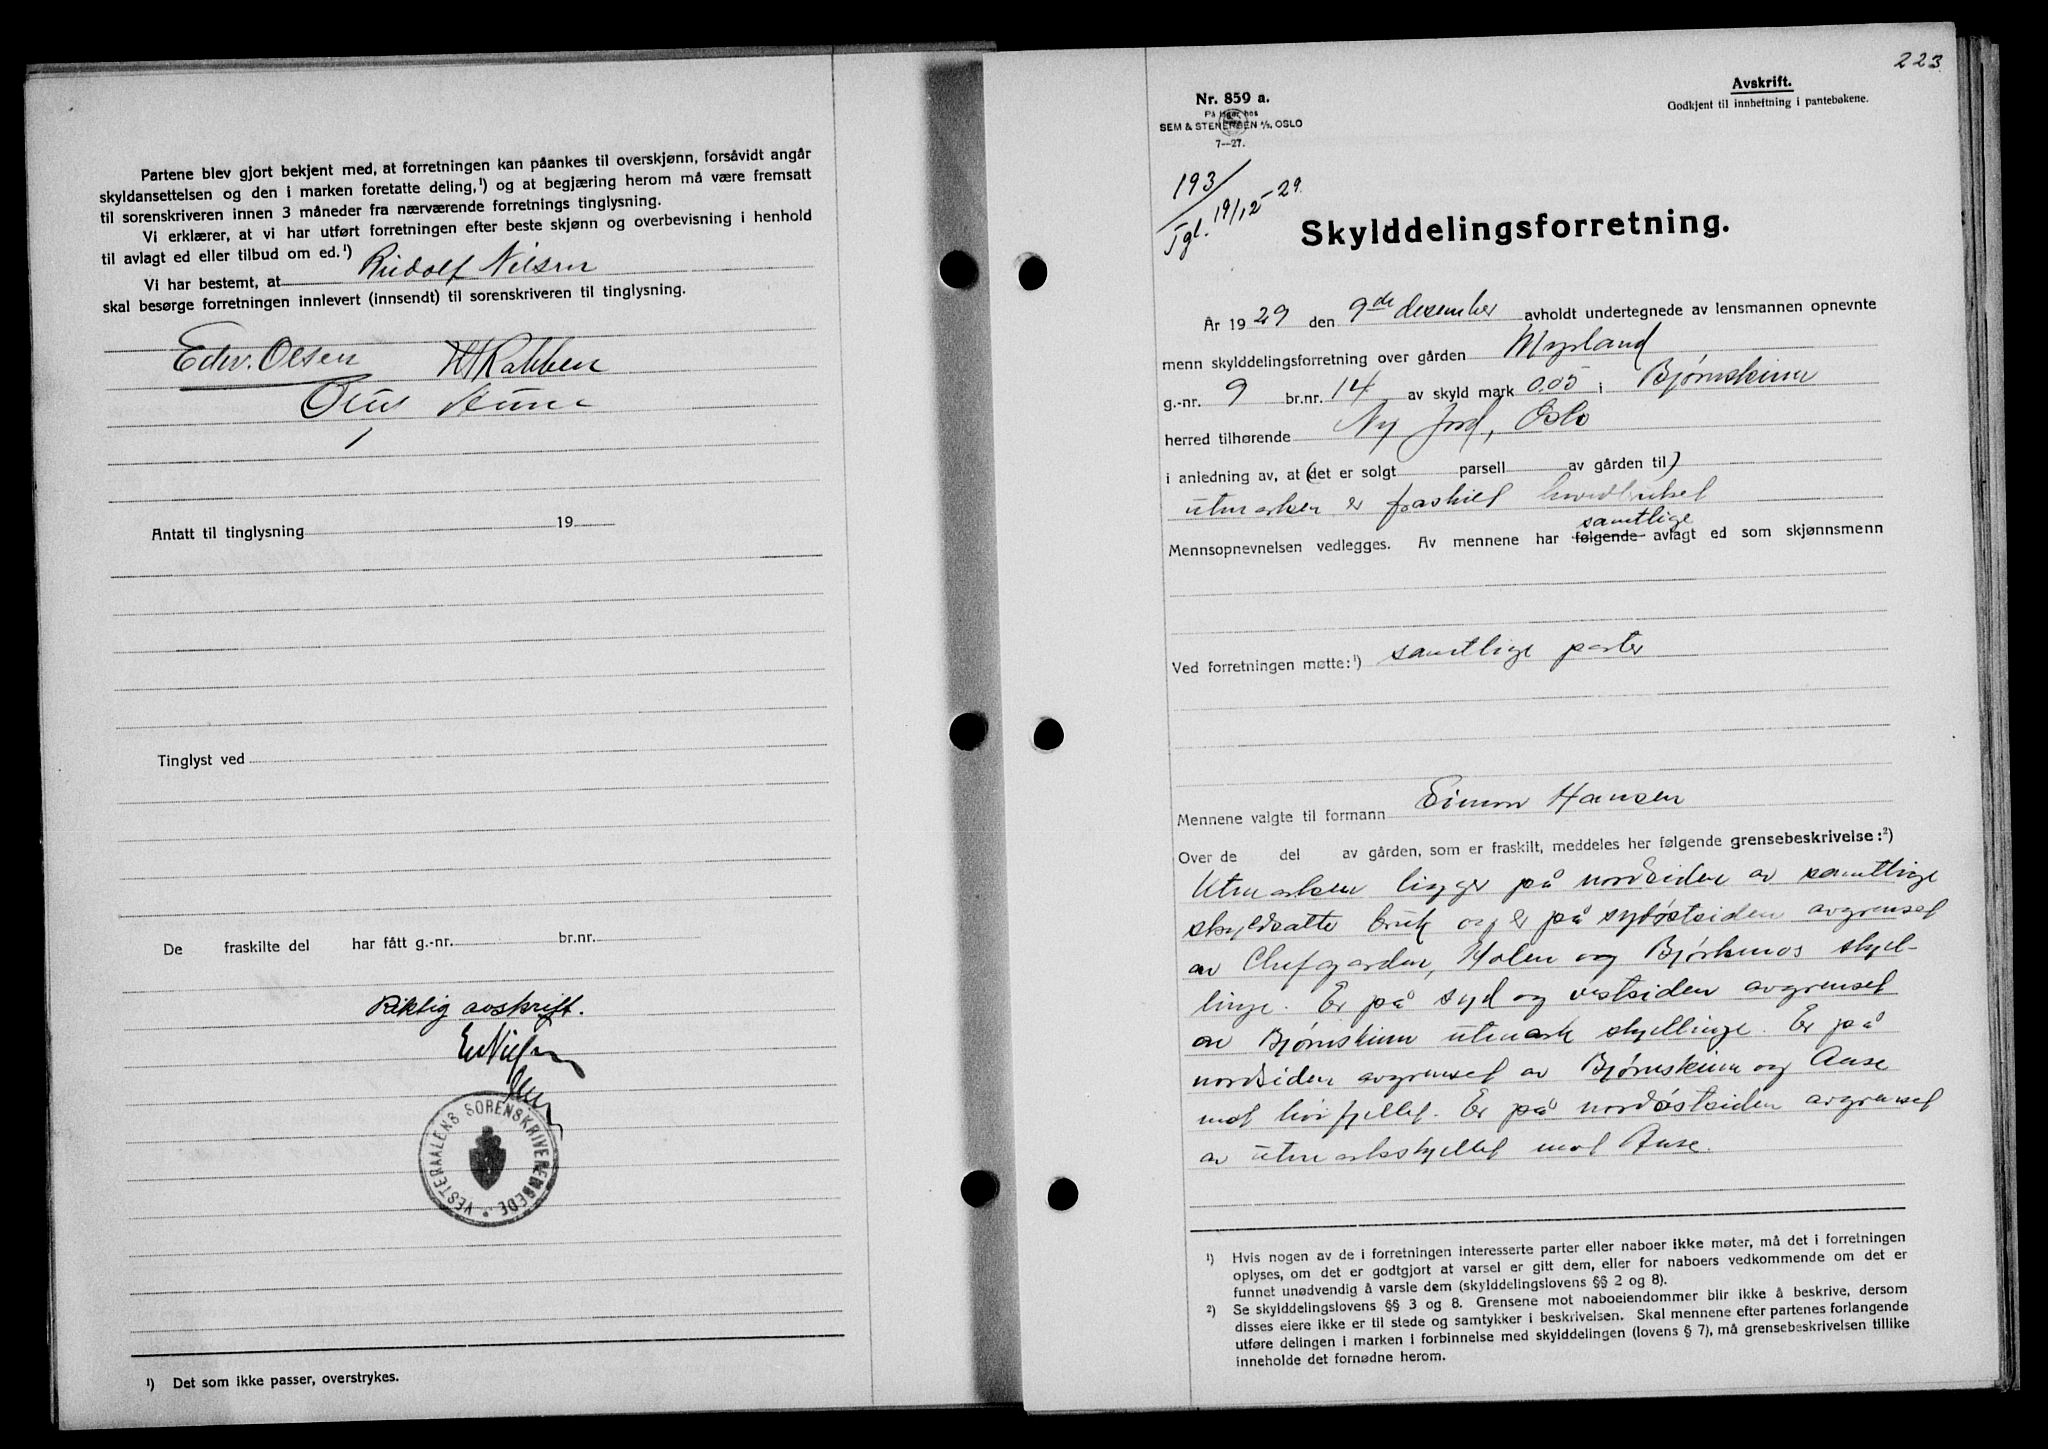 Partene blev gjort bekjent med, at forretningen kan påankes til overskjønn, forsåvidt angår
skyldansettelsen og den i marken foretatte deling,¹) og at begjæring herom må være fremsatt
til sorenskriveren innen 3 måneder fra nærværende forretnings tinglysning.
Vi erklærer, at vi har utført forretningen efter beste skjønn og overbevisning i henhold
til avlagt ed eller tilbud om ed.¹)
Vi har bestemt, at Rudolf Nilsen
skal besørge forretningen innlevert (innsendt) til sorenskriveren til tinglysning.
Edv. Olsen
Antatt til tinglysning 19
Tinglyst ved
De fraskilte del har fått g.-nr. br.nr.
Riktig avskrift.
VESTERAALENS SORENSKRIVEREMBEDE
¹) Det som ikke passer, overstrykes.
223
Avskrift.
Godkjent til innheftning i pantebøkene.
Nr. 859 a.
På lager hos
SEM & STENERSEN A/S, OSLO
7—27.
193
Tgl. 19/12-29
Skylddelingsforretning.
År 1929 den 9de desember avholdt undertegnede av lensmannen opnevnte
menn skylddelingsforretning over gården Myrland
g.-nr. 9 br.nr. 14 av skyld mark 0,05 i Bjørnskinn
herred tilhørende Ny Jord, Oslo
i anledning av, at (det er solgt parsell av gården til)
utmarken er fraskilt hovedbruket
samtlige
Mennsopnevnelsen vedlegges. Av mennene har følgende avlagt ed som skjønnsmenn
Ved forretningen møtte:¹) samtlige parter
Mennene valgte til formann Simon Hansen
Over de del av gården, som er fraskilt, meddeles her følgende grensebeskrivelse:²)
Utmarken ligger på nordsiden av samtlige
skyldsatte bruk og er på sydøstsiden avgrenset
av Chefgården, Holen og Bjørkmos skjel-
linje. Er på syd og vestsiden avgrenset
av Bjørnskinn utmark skjellinje. Er på
nordsiden avgrenset av Bjørnskinn og Aase
mot høifjellet. Er på nordøstsiden avgrenset
av utmarksskjellet mot Aase.
¹) Hvis nogen av de i forretningen interesserte parter eller naboer ikke møter, må det i forretningen
oplyses, om det er godtgjort at varsel er gitt dem, eller for naboers vedkommende om det er
funnet unødvendig å varsle dem (skylddelingslovens §§ 2 og 8).
²) Se skylddelingslovens §§ 3 og 8. Grensene mot naboeiendommer blir ikke å beskrive, dersom
disses eiere ikke er til stede og samtykker i beskrivelsen. Skal mennene efter partenes forlangende
utføre delingen i marken i forbinnelse med skylddelingen (lovens § 7), må grensebeskrivelsen tillike
inneholde det fornødne herom.